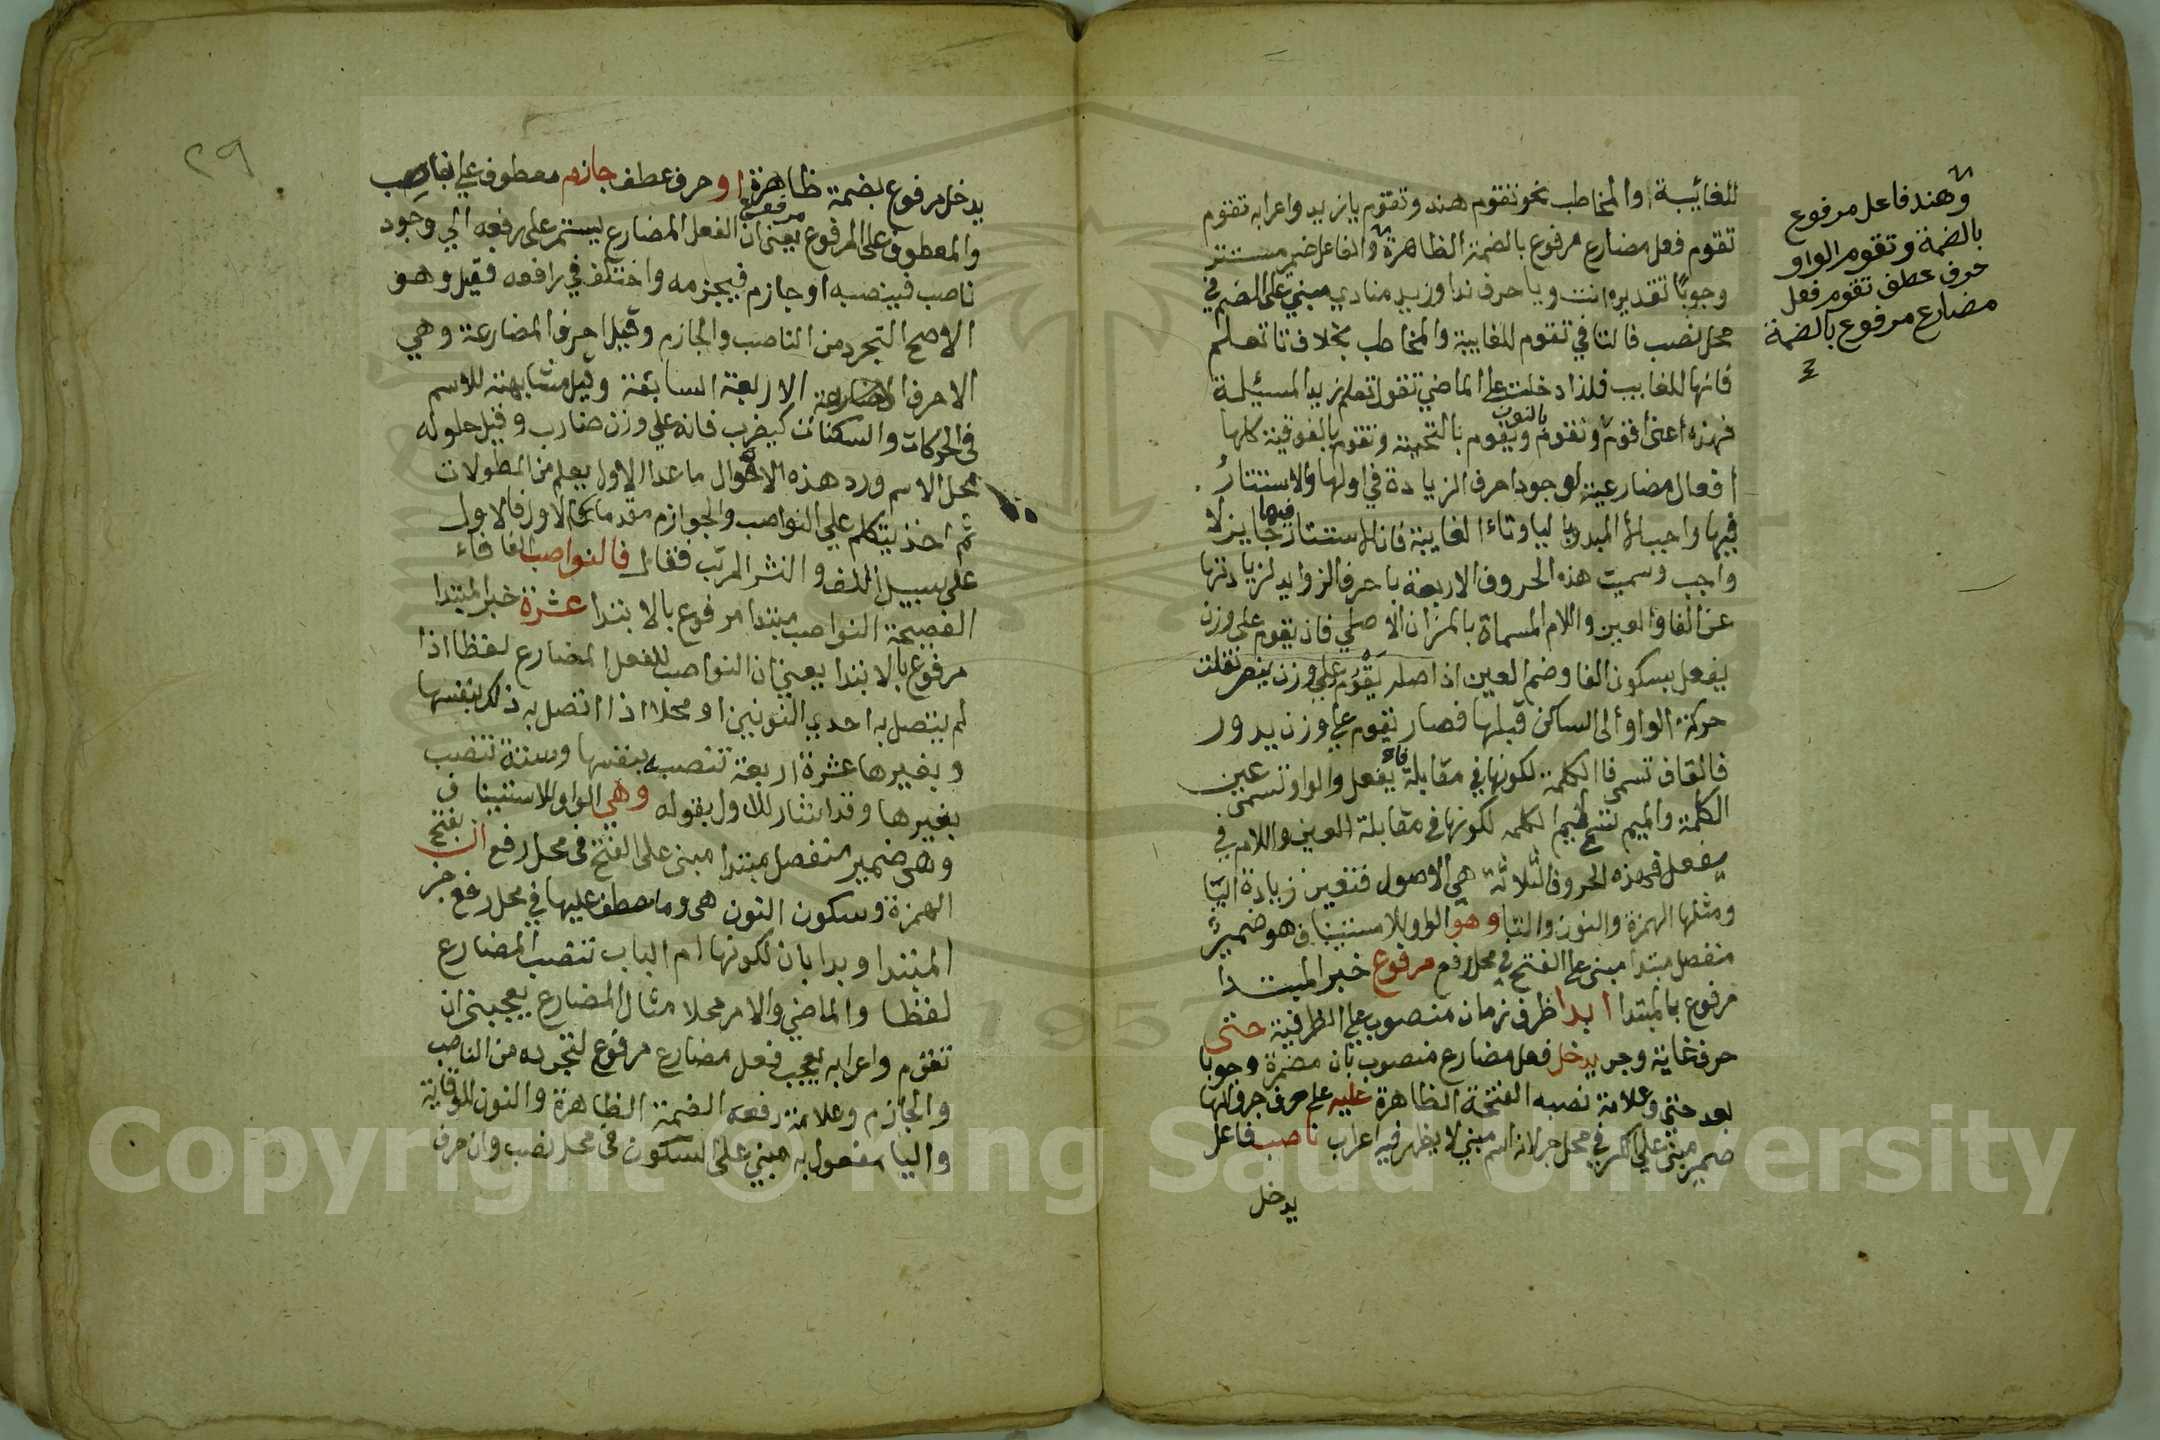 للغائيبة والمخاطب نحو تقوم هند وتقوم يا زيد واعرابه تقوم
تقوم فعل مضارع مرفوع بالضمة الظاهرة والفاعل ضمير مستتر
وجوبًا تقديره انت ويا حرف ندا وزيد منادي مبني على الضم في
محل نصب فالتا في تقوم للغايبة والمخاطب بخلاف تا تعلم
فانها للغايب فلذا دخلت على الماضي تقول تعلم زيد المسئلة
فهذه أعنى اقوم ونقوم بالنون ويقوم بالتحتية وتقوم بالفوقية كلها
أفعال مضارعية لوجود احرف الزيادة في اولها والاستتار
فيها واجب الا المبدو باليا وتاء الغايبة فان الاستتار فيها جايز لا
واجب وسميت هذه الحروف الاربعة باحرف الزوايد لزيادتها
عن الفا والعين واللام المسماة بالميزان الاصلي فان يقوم على وزن
يفعل بسكون الفا وضم العين اذ اصله يَقْوُم على وزن ينصر نقلت
حركة الواو ألى الساكن قبلها فصار يقوم علي وزن يدور
فالقاف تسمى فا الكلمة لكونها في مقابلة فاء يفعل والواو تسمى عين
الكلمة والميم تسمى ميم الكلمه لكونها في مقابلة العين واللام في
يفعل فهذه الحروف الثلاثة هي الاصول فتعين زيادة اليا
ومثلها الهمزة والنون والتا وهو الواو للاستيناف هو ضمير
منفصل مبتدا مبنى على الفتح في محل رفع مرفوع خبر المبتدا
مرفوع بالمبتدا ابدا ظرف زمان منصوب على الظرفية حتى
حرف غاية وجر يدخل فعل مضارع منصوب بان مضمرة وجوبا
بعد حتى وعلامة نصبه الفتحة الظاهرة عليه على حرف جر والها
ضمير مبنى على الكسر في محل جر لانه اسم مبني لا يظهر فيه اعراب ناصب فاعل
يدخل
وهند فاعل مرفوع
بالضمة وتقوم الواو
حرف عطف تقوم فعل
مضارع مرفوع بالضمة
٢٩
يدخل مرفوع بضمة ظاهرة او حرف عطف جازم معطوف على ناصب
والمعطوف على المرفوع مرفوع يعنى ان الفعل المضارع يستمر على رفعه الي وجود
ناصب فينصبه او جازم فيجزمه واختلف في رافعه فقيل وهو
الاصح التجرد من الناصب والجازم وقيل احرف المضارعة وهي
الاحرف الاربعة السابقة وقيل مشابهته للاسم
في الحركات والسكنات كيضرب فانه علي وزن ضارب وقيل حلوله
محل الاسم ورد هذه الاقوال ما عدا الاول يعلم من المطولات
ثم اخذ يتكلم علي النواصب والجوازم مقدما الاول فالاول
على سبيل اللف والنشر المرتب فقال فالنواصب الفا فاء
الفصيحة النواصب مبتدا مرفوع بالابتدا عشرة خبر المبتدا
مرفوع بالابتدا يعني ان النواصب للفعل المضارع لفظا اذا
لم يتصل به احدي النونين او محلا اذا اتصل به ذلك بنفسها
وبغيرها عشرة اربعة تنصب بنفسها وستة تنصب
بغيرها وقد اشار للاول بقوله وهي الواو للاستيناف
وهي ضمير منفصل مبتدا مبنى على الفتح في محل رفع ان بفتح
الهمزة وسكون النون هى وما عطف عليها في محل رفع خبر
المبتدا وبدا بان لكونها ام الباب تنصب المضارع
لفظا والماضي والامر محلا مثال المضارع يعجبنى ان
تقوم واعرابه يعجب فعل مضارع مرفوع لتجرده من الناصب
والجازم وعلامة رفعه الضمة الظاهرة والنون للوقاية
واليا مفعول به مبني على السكون في محل نصب وان حرف
Copyright © King Saud University
1957